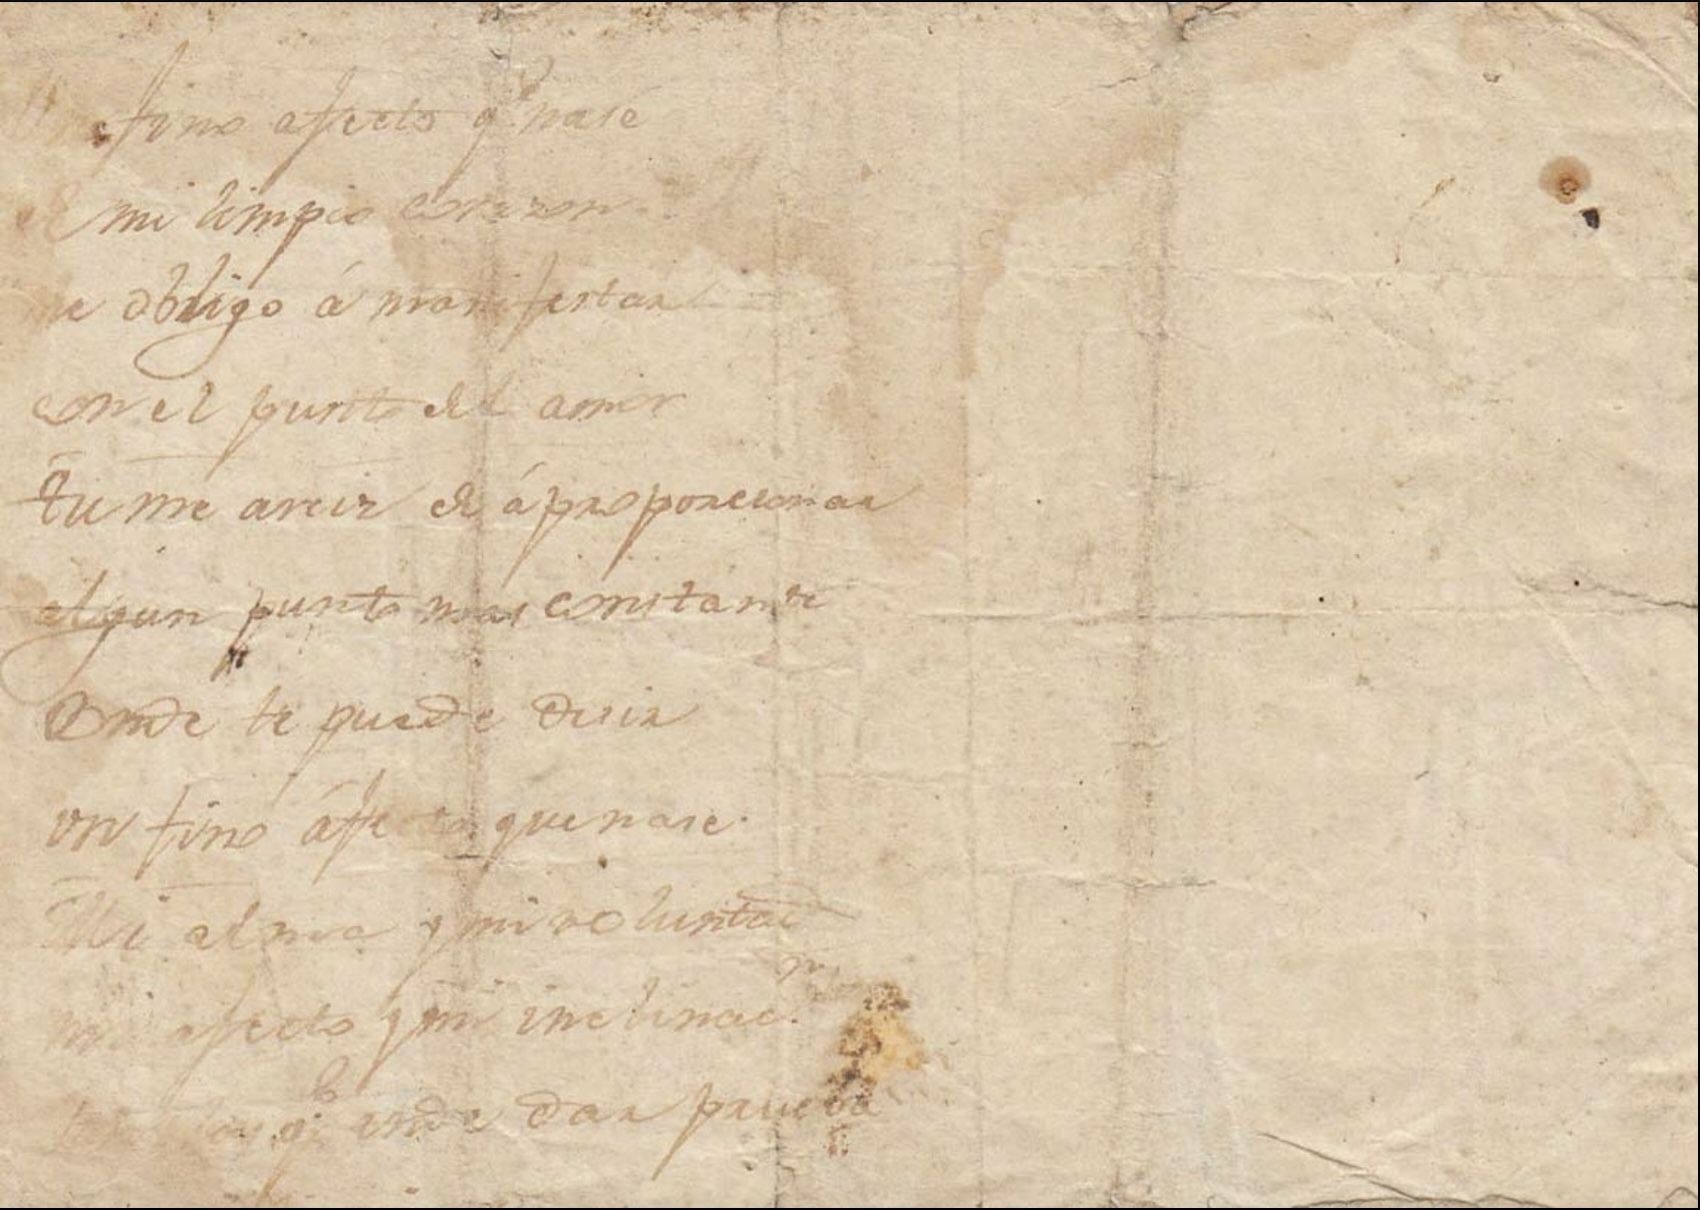 Un fino afecto q.e nase
de mi limpio corazon
me obligo á manifestar
con el punto del amor
tu me as de áproporcionar
algun punto mas constante
donde te puede desir
vn fino áfecto que nase.
Mi alma y mi voluntad
mi afecto y mi inclinac.n
q.e inde dar prueba